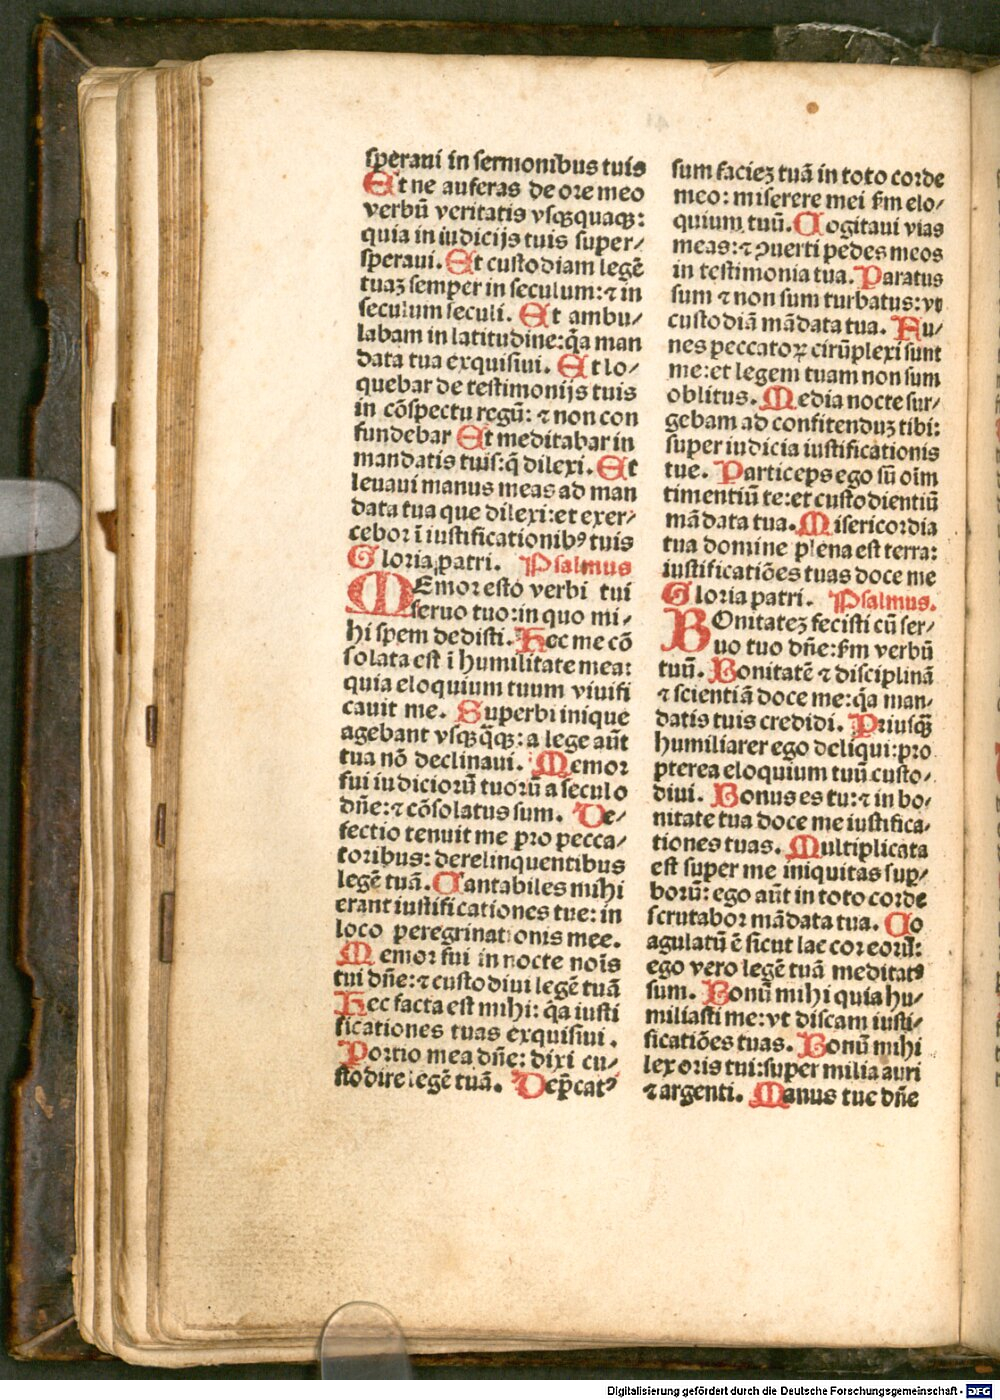 sperani in sermonibus tuis
Et ne auferas de ore meo
verbū veritatis vsqꝫquaqꝫ:
quia in iudicijs tuis super⸗
speraui. Et custodiam legē
tuaꝫ semper in seculum: ⁊ in
seculum seculi. Et ambu⸗
labam in latitudine: q̄a man
data tua exquisiui. Et lo⸗
quebar de testimonijs tuis
in cōspectu regū: ⁊ non con
fundebar Et meditabar in
mandatis tuis: q̄ dilexi. Et
leuaui manus meas ad man
data tua que dilexi: et exer⸗
cebor ī iustificationibꝰ tuis
Gloria patri. Psalmus
MEmor esto verbi tui
seruo tuo: in quo mi⸗
hi spem dedisti. Hec me cō
solata est ī humilitate mea:
quia eloquium tuum viuifi
cauit me. Superbi inique
agebant vsqꝫq̄qꝫ: a lege aūt
tua nō declinaui. Memor
fui iudiciorū tuorū a seculo
dn̄e: ⁊ cōsolatus sum. De⸗
fectio tenuit me pro pecca⸗
toribus: derelinquentibus
legē tuā. Cantabiles mihi
erant iustificationes tue: in
loco peregrinationis mee.
Memor fui in nocte noīs
tui dn̄e: ⁊ custodiui legē tuā
Hec facta est mihi: q̄a iusti
ficationes tuas exquisiui.
Portio mea dn̄e: dixi cu⸗
stodire legē tuā. Dep̄catꝰ
sum facieꝫ tuā in toto corde
meo: miserere mei ẜm elo⸗
quium tuū. Cogitaui vias
meas: ⁊ ꝯuerti pedes meos
in testimonia tua. Paratus
sum ⁊ non sum turbatus: vt
custodiā mādata tua. Fu⸗
nes peccatoꝝ cirūplexi sunt
me: et legem tuam non sum
oblitus. Media nocte sur⸗
gebam ad confitenduꝫ tibi:
super iudicia iustificationis
tue. Particeps ego sū oīm
timentiū te: et custodientiū
mādata tua. Misericordia
tua domine plena est terra:
iustificatiōes tuas doce me
Gloria patri. Psalmus.
BOnitateꝫ fecisti cū ser⸗
uo tuo dn̄e: ẜm verbū
tuū. Bonitatē ⁊ disciplinā
⁊ scientiā doce me: q̄a man⸗
datis tuis credidi. Priusqꝫ̄
humiliarer ego deliqui: pro
pterea eloquium tuū custo⸗
diui. Bonus es tu: ⁊ in bo⸗
nitate tua doce me iustifica⸗
tiones tuas. Multiplicata
est super me iniquitas suꝑ⸗
borū: ego aūt in toto corde
scrutabor mādata tua. Co
agulatū ē sicut lac cor eorū:
ego vero legē tuā meditatꝰ
sum. Bonū mihi quia hu⸗
miliasti me: vt discam iusti⸗
ficatiōes tuas. Bonū mihi
lex oris tui: super milia auri
⁊ argenti. Manus tue dn̄e
Digitalisierung gefördert durch die Deutsche Forschungsgemeinschaft - DFG